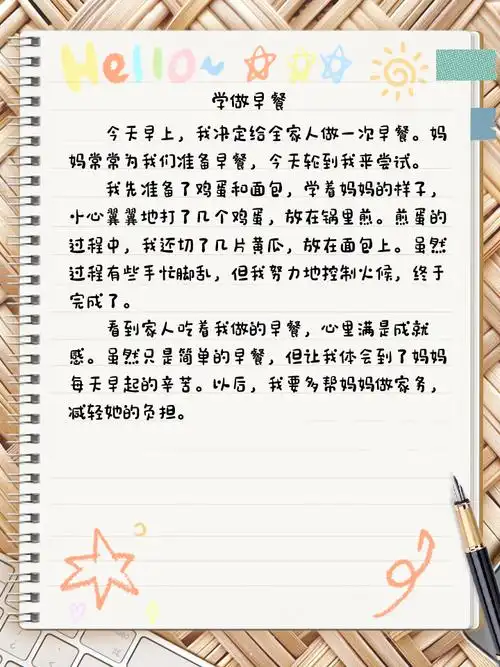 Hello~
学做早餐
今天早上，我决定给全家人做一次早餐。妈
妈常常为我们准备早餐，今天轮到我来尝试。
我先准备了鸡蛋和面包，学着妈妈的样子，
小心翼翼地打了几个鸡蛋，放在锅里煎。煎蛋的
过程中，我还切了几片黄瓜，放在面包上。虽然
过程有些手忙脚乱，但我努力地控制火候，终于
完成了。
看到家人吃着我做的早餐，心里满是成就
感。虽然只是简单的早餐，但让我体会到了妈妈
每天早起的辛苦。以后，我要多帮妈妈做家务，
减轻她的负担。